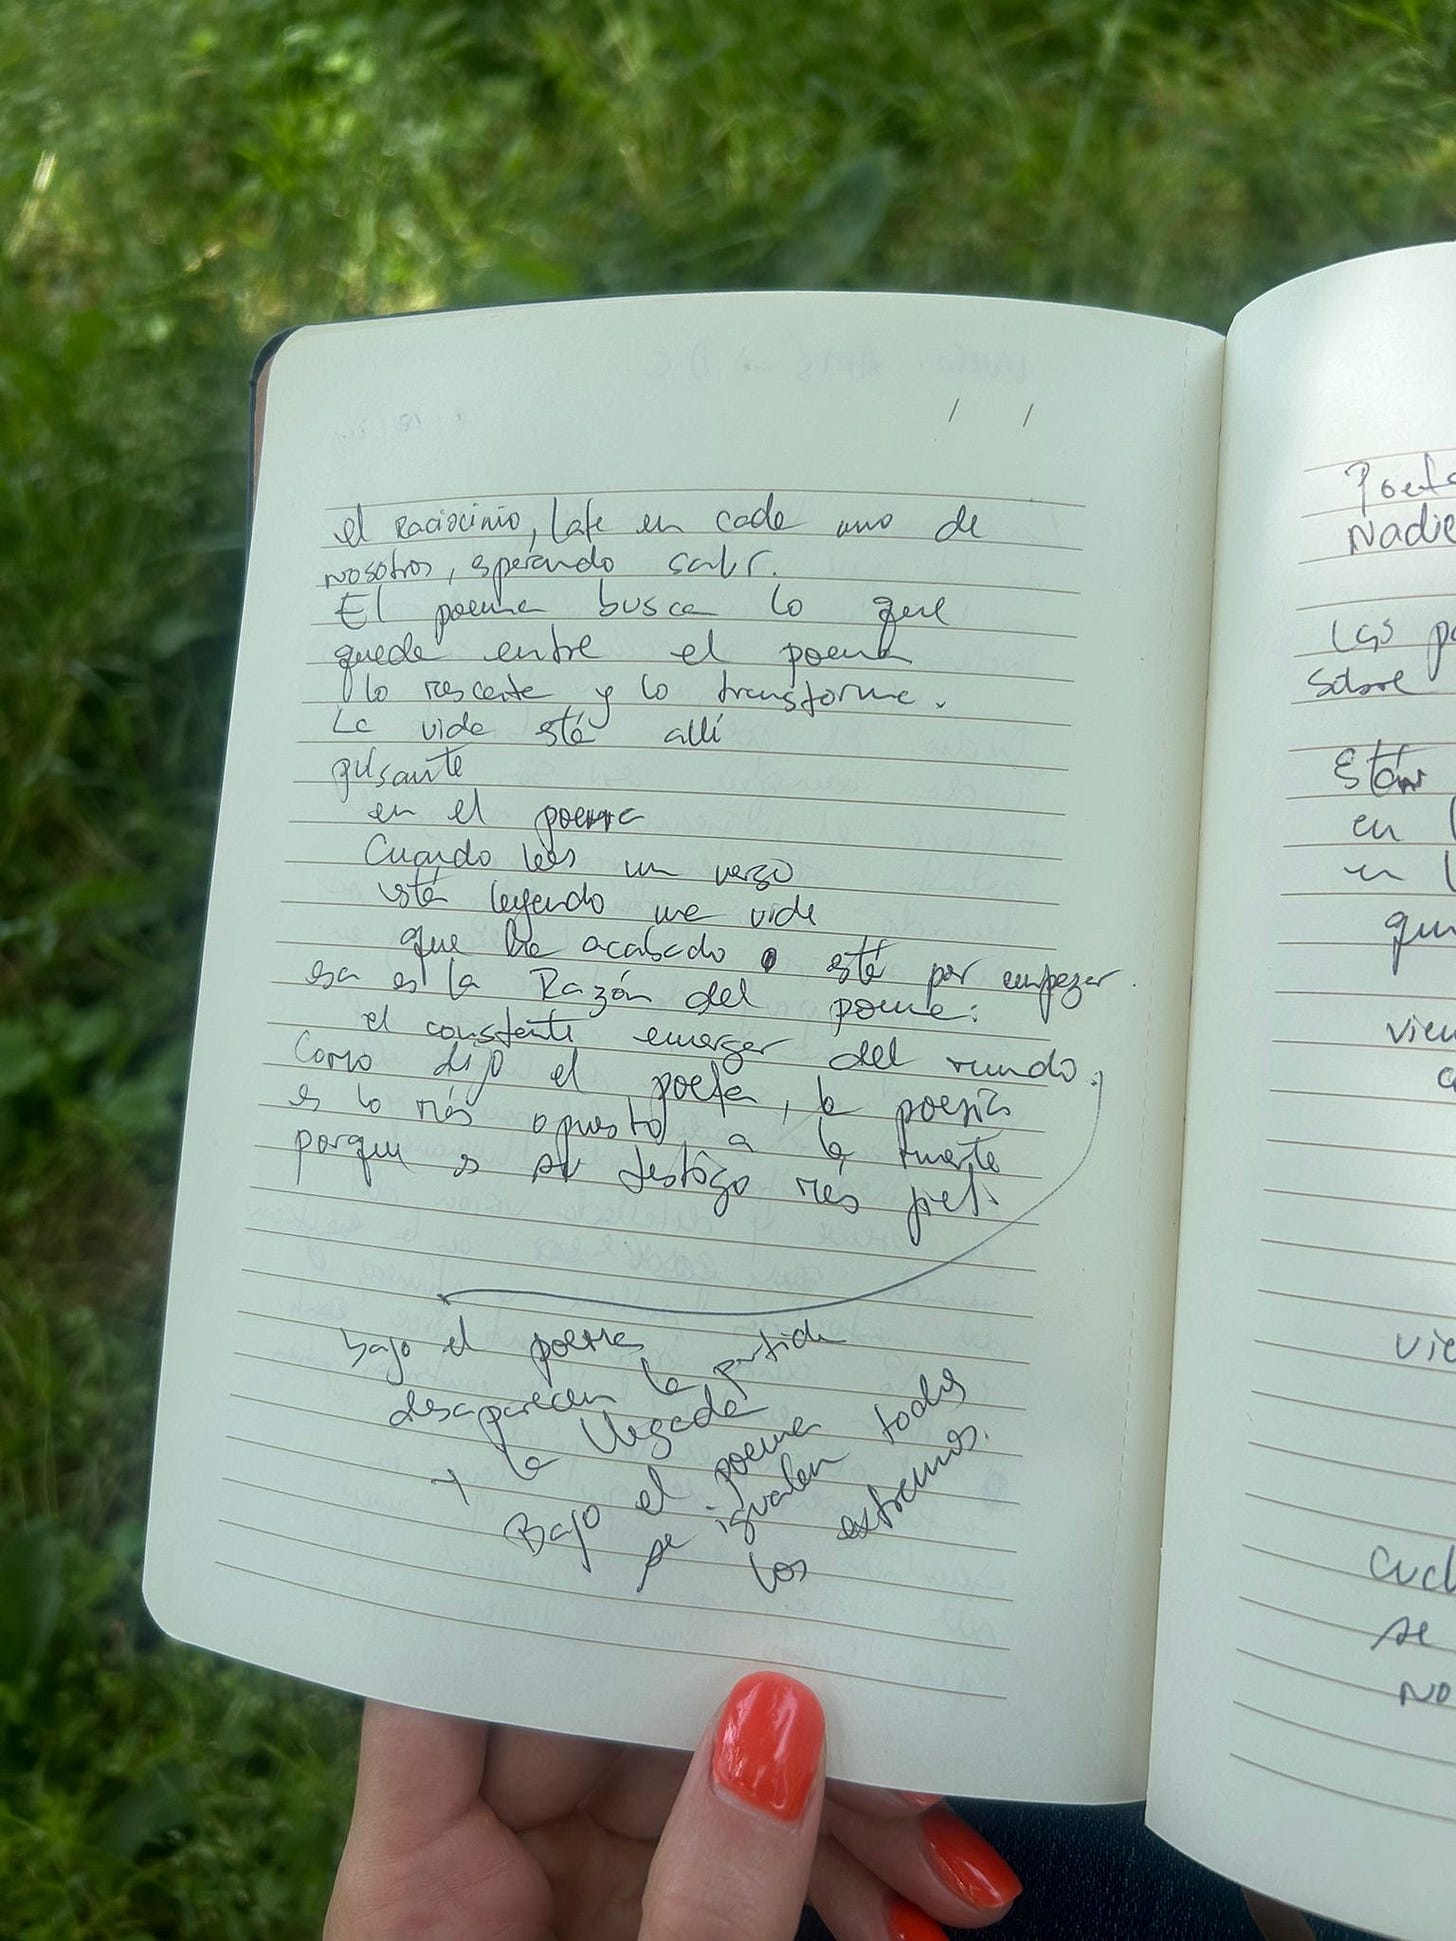 el raciocinio, late en cada uno de
nosotros, esperando salir.
El poema busca lo que
quede entre el poema
lo rescate y lo transforme.
La vida está allí
pulsante
en el poema
Cuando lees un verso
estás leyendo una vida
que ha acabado o está por empezar.
esa es la Razón del poema:
el constante emerger del mundo.
Como dijo el poeta, la poesía
es lo más opuesto a la muerte
porque es su testigo más fiel.
bajo el poema
desaparecen la partida
+ la llegada
Bajo el poema
se igualan todos
los extremos.
Poeta
Nadie
las
sobre
Están
en
en
que
se
no